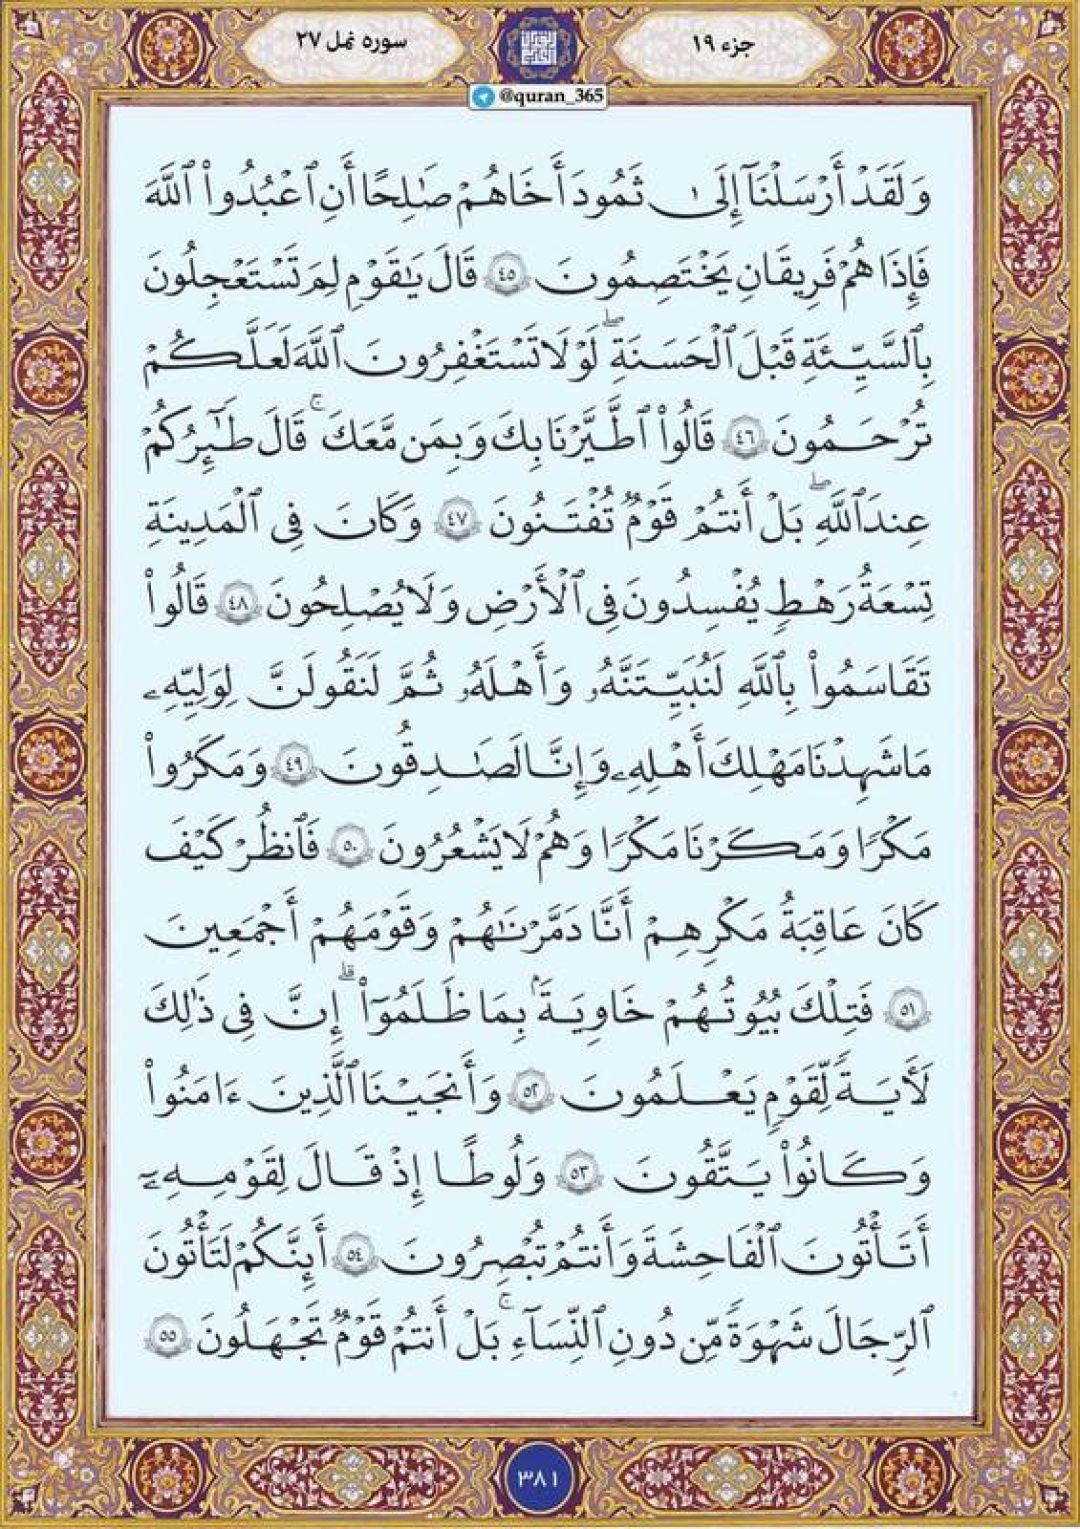 جزء ۱۹
سوره نمل ۲۷
@quran_365
وَلَقَدْ أَرْسَلْنَآ إِلَىٰ ثَمُودَ أَخَاهُمْ صَٰلِحًا أَنِ ٱعْبُدُوا۟ ٱللَّهَ
فَإِذَا هُمْ فَرِيقَانِ يَخْتَصِمُونَ ٤٥ قَالَ يَٰقَوْمِ لِمَ تَسْتَعْجِلُونَ
بِٱلسَّيِّئَةِ قَبْلَ ٱلْحَسَنَةِ ۖ لَوْلَا تَسْتَغْفِرُونَ ٱللَّهَ لَعَلَّكُمْ
تُرْحَمُونَ ٤٦ قَالُوا۟ ٱطَّيَّرْنَا بِكَ وَبِمَن مَّعَكَ ۚ قَالَ طَٰٓئِرُكُمْ
عِندَ ٱللَّهِ ۖ بَلْ أَنتُمْ قَوْمٌ تُفْتَنُونَ ٤٧ وَكَانَ فِى ٱلْمَدِينَةِ
تِسْعَةُ رَهْطٍ يُفْسِدُونَ فِى ٱلْأَرْضِ وَلَا يُصْلِحُونَ ٤٨ قَالُوا۟
تَقَاسَمُوا۟ بِٱللَّهِ لَنُبَيِّتَنَّهُۥ وَأَهْلَهُۥ ثُمَّ لَنَقُولَنَّ لِوَلِيِّهِۦ
مَا شَهِدْنَا مَهْلِكَ أَهْلِهِۦ وَإِنَّا لَصَٰدِقُونَ ٤٩ وَمَكَرُوا۟
مَكْرًا وَمَكَرْنَا مَكْرًا وَهُمْ لَا يَشْعُرُونَ ٥٠ فَٱنظُرْ كَيْفَ
كَانَ عَٰقِبَةُ مَكْرِهِمْ أَنَّا دَمَّرْنَٰهُمْ وَقَوْمَهُمْ أَجْمَعِينَ
٥١ فَتِلْكَ بُيُوتُهُمْ خَاوِيَةًۢ بِمَا ظَلَمُوٓا۟ ۗ إِنَّ فِى ذَٰلِكَ
لَـَٔايَةً لِّقَوْمٍ يَعْلَمُونَ ٥٢ وَأَنجَيْنَا ٱلَّذِينَ ءَامَنُوا۟
وَكَانُوا۟ يَتَّقُونَ ٥٣ وَلُوطًا إِذْ قَالَ لِقَوْمِهِۦٓ
أَتَأْتُونَ ٱلْفَٰحِشَةَ وَأَنتُمْ تُبْصِرُونَ ٥٤ أَئِنَّكُمْ لَتَأْتُونَ
ٱلرِّجَالَ شَهْوَةً مِّن دُونِ ٱلنِّسَآءِ ۚ بَلْ أَنتُمْ قَوْمٌ تَجْهَلُونَ ٥٥
۳۸۱